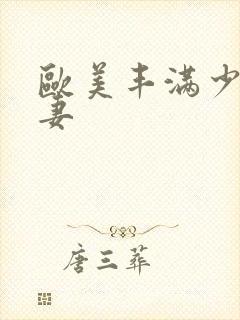 歐美丰滿少
妻
唐三葬